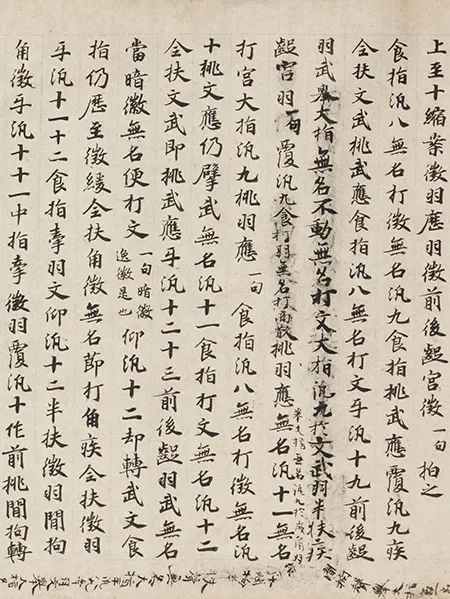 上至十縮案徵羽應羽徵前後齪宮徵一句拍之
食指汎八無名打徵無名汎九食指挑武應覆汎九疾
全扶文武挑武應食指汎八無名打文乎汎十九前後齪
羽武大指無名不動無名打文大指汎九於文武羽半扶疾
齪宮羽一句覆汎九食打羽無名打商散挑羽應無名汎十一無名
打宮大指汎九挑羽應一句食指汎八無名打徵無名汎
十挑文應仍擘武無名汎十一食指打文無名汎十二
全扶文武即挑武應乎汎十二十三前後齪羽武無名
當暗徽無名便打文一句暗徽逸徽是也仰汎十二却轉武文食
指仍歷至徵緩全扶角徵無名即打角疾全扶徵羽
乎汎十一十二食指牽羽文仰汎十二半扶徵羽間拘
角徵乎汎十十一中指牽徵羽覆汎十作前挑間拘轉